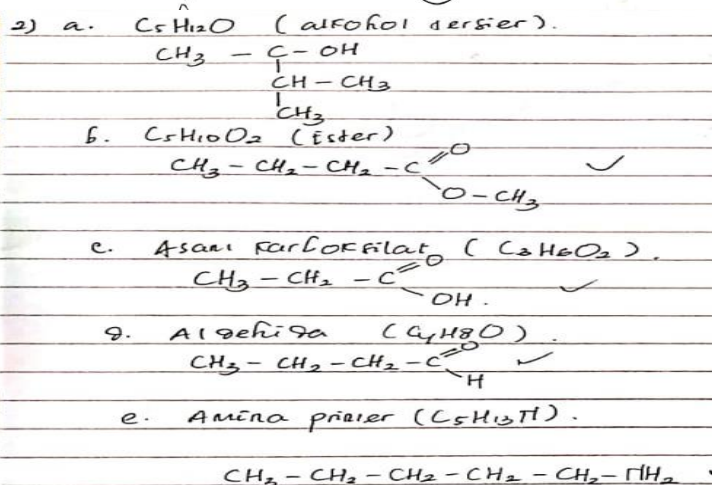 2) a. C5H12O (alkohol tersier).
CH3 - C - OH
CH - CH3
CH3
b. C5H10O2 (Ester)
CH3 - CH2 - CH2 - C = O
O - CH3
c. Asam karboksilat (C3H6O2).
CH3 - CH2 - C = O
OH.
d. Aldehida (C4H8O).
CH3 - CH2 - CH2 - C = O
H
e. Amina primer (C5H13N).
CH3 - CH2 - CH2 - CH2 - CH2 - NH2